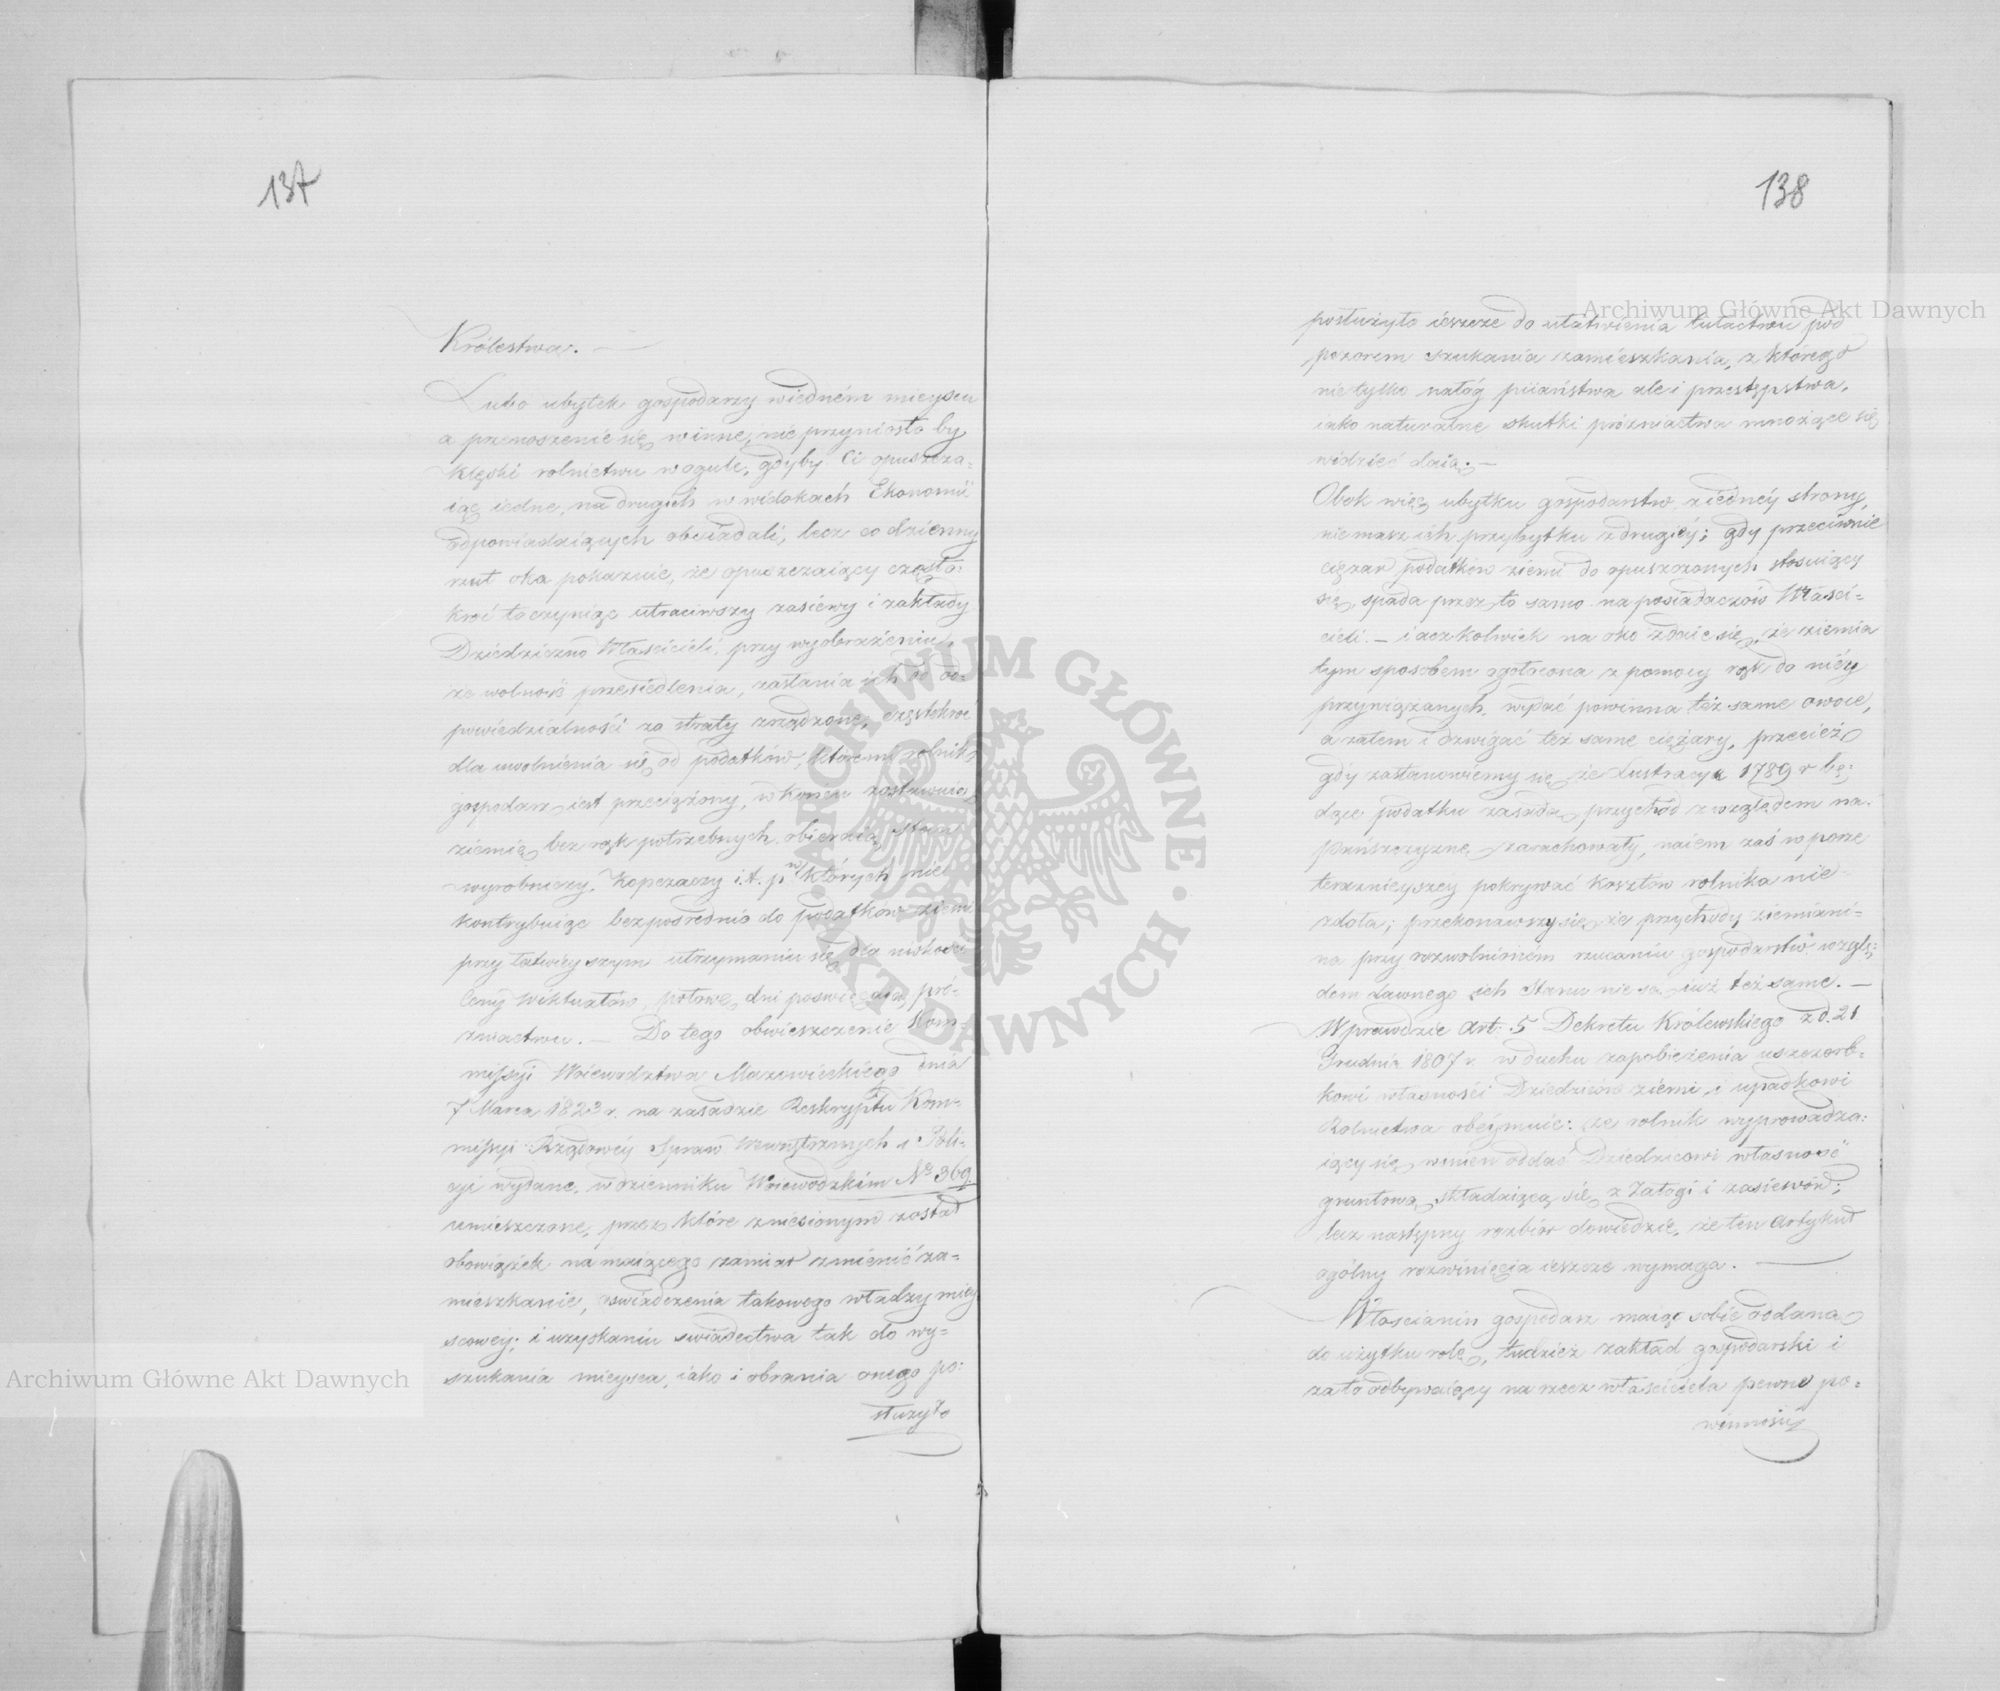 137
Królestwa. —
Lubo ubytek gospodarzy w iedném mieyscu
a przenoszenie się w inne, nie przyniosło by
klęski rolnictwu w ogule, gdyby Ci opuszcza-
iąc iedne, na drugich w widokach Ekonomii
odpowiadaiących obsiadali, lecz codzienny
rzut oka pokazuie, że opuszczaiący często:
kroć to czyniąc utraciwszy zasiewy i zakłady
Dziedziczno Właścicieli, przy wyobrażeniu
że wolność przesiedlenia, zasłania ich od od-
powiedzialności za straty zrządzone, częstokroć
dla uwolnienia się od podatków, któremi rolnik
gospodarz iest przeciążony, w końcu zostawuią
ziemię bez rąk potrzebnych obieraią stan
wyrobniczy, kopczaczy i.t.p. w których nie
kontrybuiąc bezpośrednio do podatków ziemi
przy łatwieyszym utrzymaniu się dla niskości
ceny wiktuałów, połowę dni poswięcaią pró-
żniactwu. — Do tego obwieszczenie Kom-
missyi Woiewództwa Mazowieckiego dnia
7 Marca 1823 r. na zasadzie Reskryptu Kom-
missyi Rządowéy Spraw Wewnętrznych i Poli-
cyi wydane, w dzienniku Woiewodzkim No 369
umieszczone, przez które zniesionym został
obowiązek na maiącego zamiar zmienić za-
mieszkanie, oswiadczenia takowego władzy miey
scowéy; i uzyskaniu swiadectwa tak do wy-
szukania mieysca, iako i obrania onego po-
służyło
138
posłużyło ieszcze do ułatwienia tułactwu pod
pozorem szukania zamieszkania, z którego
nie tylko nałóg piiaństwa ale i przestępstwa,
iako naturalne skutki próżniactwa mnożące się
widzieć daią. —
Obok więc ubytku gospodarstw z iednéy strony,
nie masz ich przybytku z drugiéy; gdy przeciwnie
ciężar podatków ziemi do opuszczonych stosuiący
się, spada przez to samo na posiadaczów Właści-
cieli. — i aczkolwiek na oko zdaie się, że ziemia
tym sposobem ogołocona z pomocy rąk do niéy
przywiązanych, wydać powinna też same owoce,
a zatem i dzwigać też same ciężary, przecież
gdy zastanowiemy się że Lustracya 1789 r bę-
dące podatku zasadą przychód z względem na
pańszczyznę zarachowały, naiem zaś w porze
teraznieyszey pokrywać kosztów rolnika nie
zdoła; przekonawszy się że przychody ziemiani-
na przy rozwolnioném rzucaniu gospodarstw wzglę-
dem dawnego ich stanu nie są iuż też same. —
Wprawdzie Art. 5 Dekretu Królewskiego z d. 21
Grudnia 1807 r. w duchu zapobieżenia uszczerb-
kowi własności Dziedziców ziemi, i upadkowi
Rolnictwa obeymuie: że rolnik wyprowadza:
iący się winien oddać Dziedzicowi własność
gruntową, składaiącą się z Załogi i zasiewów;
lecz następny rozbiór dowiedzie, że ten Artykuł
ogólny rozwinięcia ieszcze wymaga. —
Włościanin gospodarz maiąc sobie oddaną
do użytku rolę, tudzież zakład gospodarski i
za to odbywaiący na rzecz właściciela pewne po-
winności
Archiwum Główne Akt Dawnych
Archiwum Główne Akt Dawnych
ARCHIWUM GŁÓWNE · AKT DAWNYCH ·